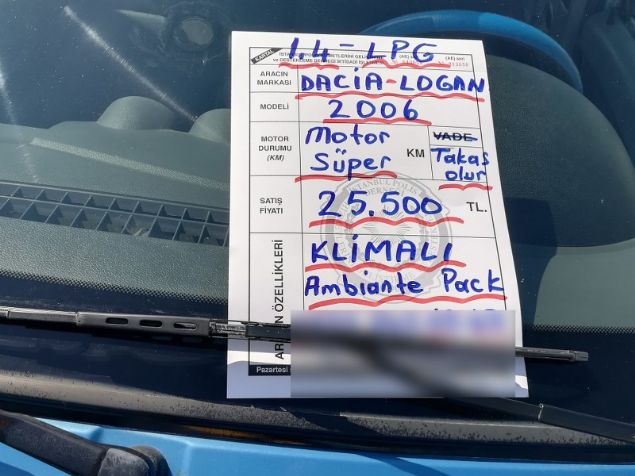 1.4-LPG
ARACIN
MARKASI
DACIA-LOGAN
MODELİ
2006
MOTOR
DURUMU
(KM)
Motor
Süper
KM
VADE
Takas
olur
SATIŞ
FİYATI
25.500
TL.
KLİMALI
Ambiante Pack
ÖZELLİKLERİ
Pazartesi